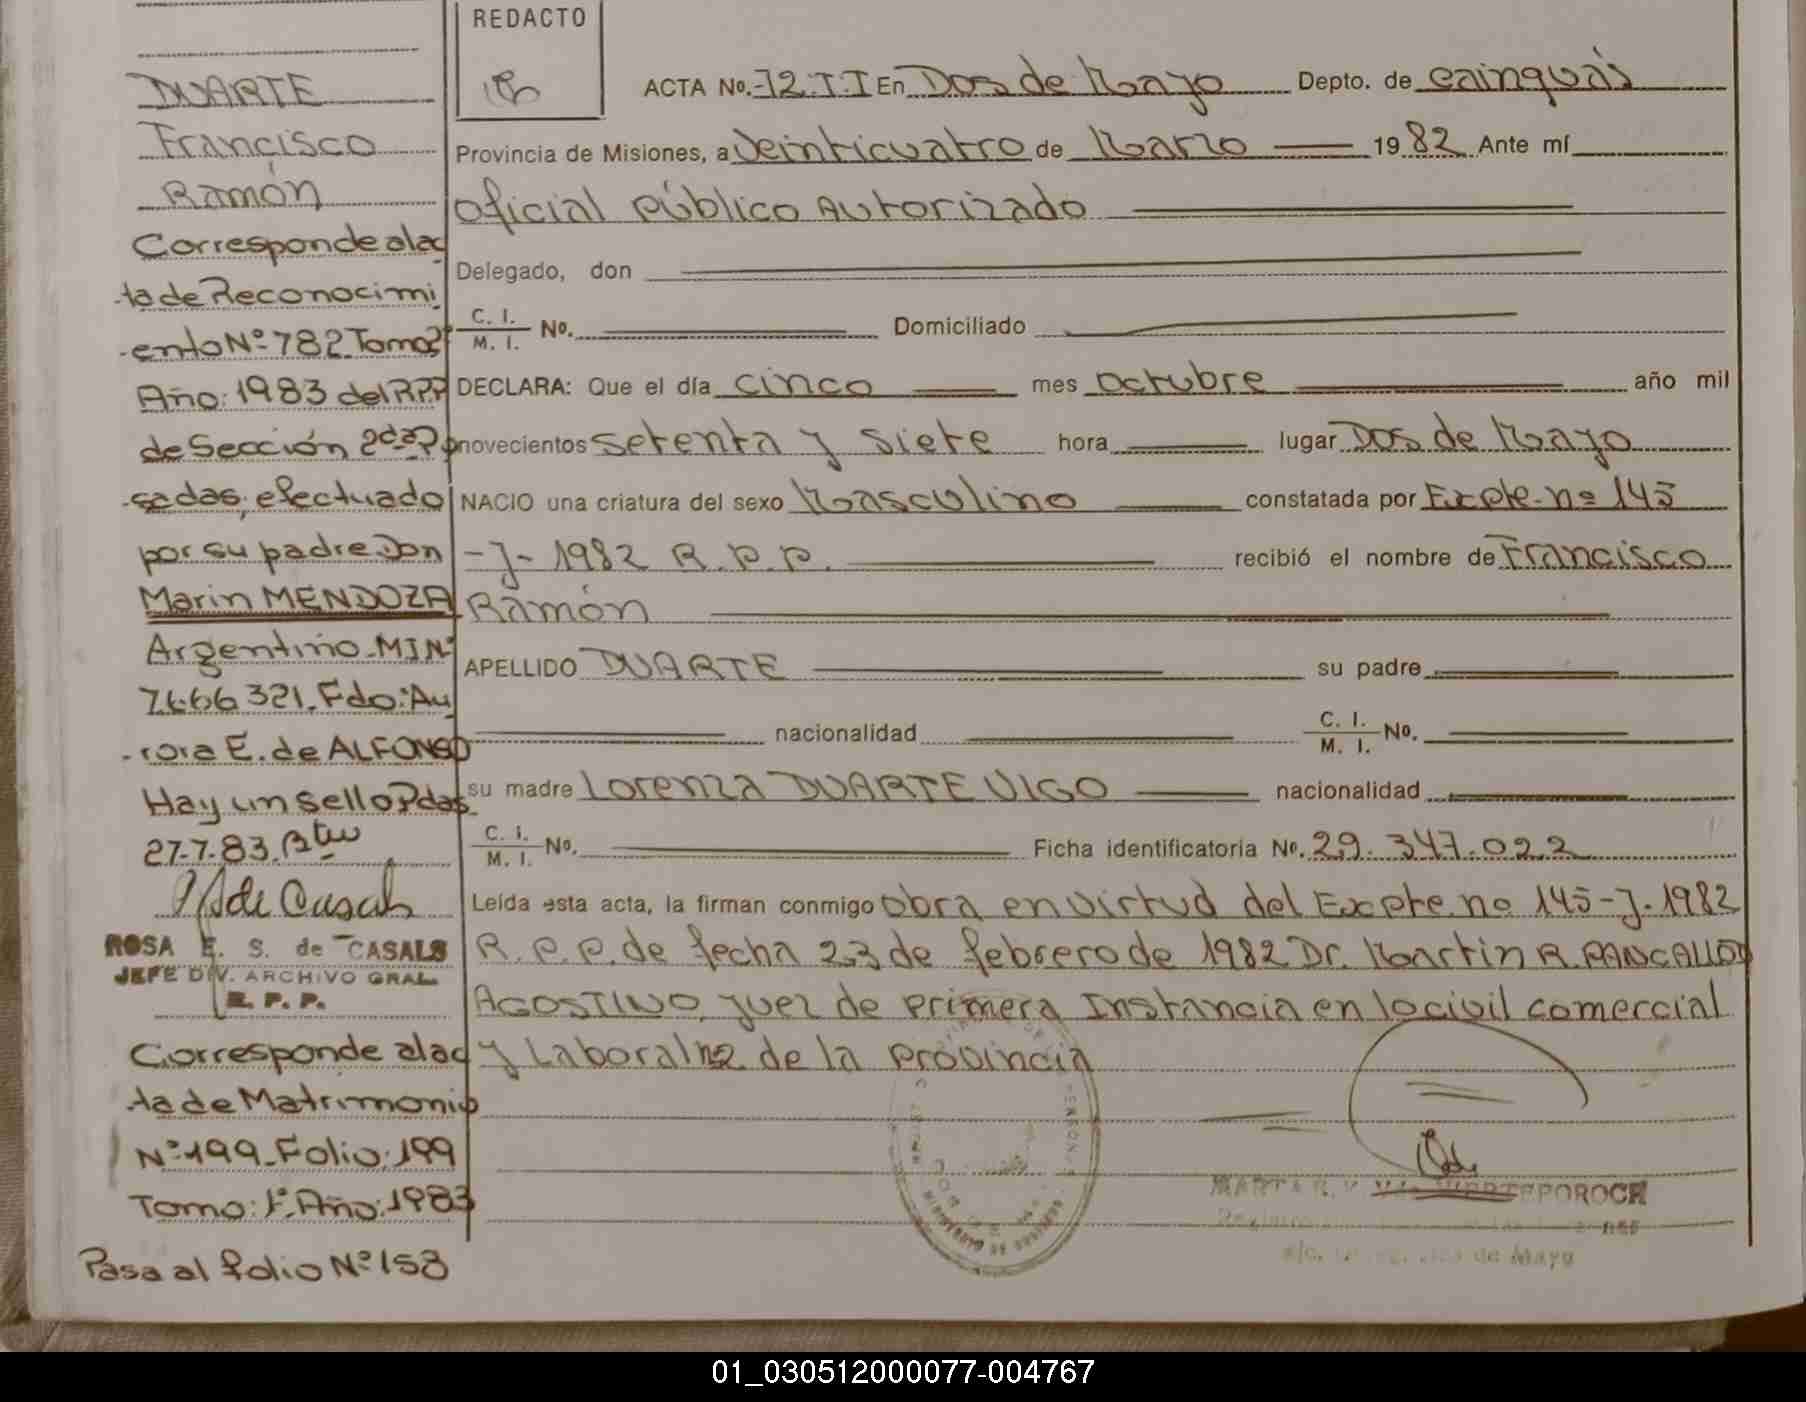 DUARTE
Francisco
Ramón
Corresponde alac
-ta de Reconocimi
-ento Nº 782 Tomo 2º
Año: 1983 del R.P.P
de Sección 2da Po
-sadas, efectuado
por su padre Don
Marin MENDOZA
Argentino-MINº
7.666 321. Fdo: Au
-rora E. de ALFONSO
Hay un sello Pdas
27-7-83.
de Casals
ROSA E. S. de CASALS
JEFE DIV. ARCHIVO GRAL.
R. P. P.
Corresponde alac
-ta de Matrimonio
Nº 199 - Folio: 199
Tomo: 1º. Año: 1983
Pasa al folio Nº 158
REDACTO
ACTA No. 72. T. I En Dos de Mayo Depto. de cainguás
Provincia de Misiones, a Veinticuatro de Marzo 19 82 Ante mí
Oficial Público Autorizado
Delegado, don
C. I.
M. I. No. Domiciliado
DECLARA: Que el día cinco mes octubre año mil
novecientos setenta y siete hora lugar Dos de Mayo
NACIO una criatura del sexo Masculino constatada por Expte. nº 145
-J- 1982 R. P. P. recibió el nombre de Francisco
Ramón
APELLIDO DUARTE su padre
nacionalidad C. I.
M. I. No.
su madre Lorenza DUARTE VIGO nacionalidad
C. I.
M. I. No. Ficha identificatoria No. 29. 347. 022
Leída esta acta, la firman conmigo Obra en virtud del Expte. nº 145-J- 1982
R. P. P. de fecha 23 de febrero de 1982 Dr. Martin R.
AGOSTINO, Juez de Primera Instancia en lo civil comercial
y Laboral nº2 de la Provincia
de Mayo
01_030512000077-004767